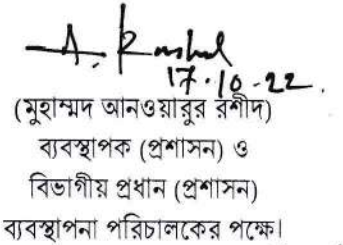 A. Rashid
17.10.22.
(মুহাম্মদ আনওয়ারুর রশীদ)
ব্যবস্থাপক (প্রশাসন) ও
বিভাগীয় প্রধান (প্রশাসন)
ব্যবস্থাপনা পরিচালকের পক্ষে।